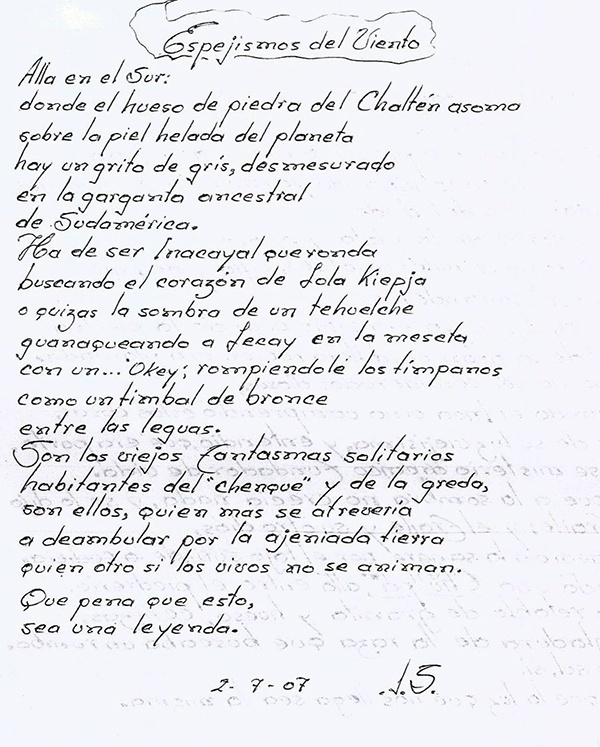 Espejismos del Viento
Alla en el Sur:
donde el hueso de piedra del Chaltén asoma
sobre la piel helada del planeta
hay un grito de gris, desmesurado
en la garganta ancestral
de Sudamérica.
Ha de ser Inacayal que ronda
buscando el corazón de Lola Kiepja
o quizas la sombra de un tehuelche
guanaqueando a Jecay en la meseta
con un... "Okey", rompiendole los tímpanos
como un timbal de bronce
entre las leguas.
Son los viejos fantasmas solitarios
habitantes del "chenque" y de la greda,
son ellos, quien mas se atrevería
a deambular por la ajeniada tierra
quien otro si los vivos no se animan.
Que pena que esto,
sea una leyenda.
2-7-07 J.S.